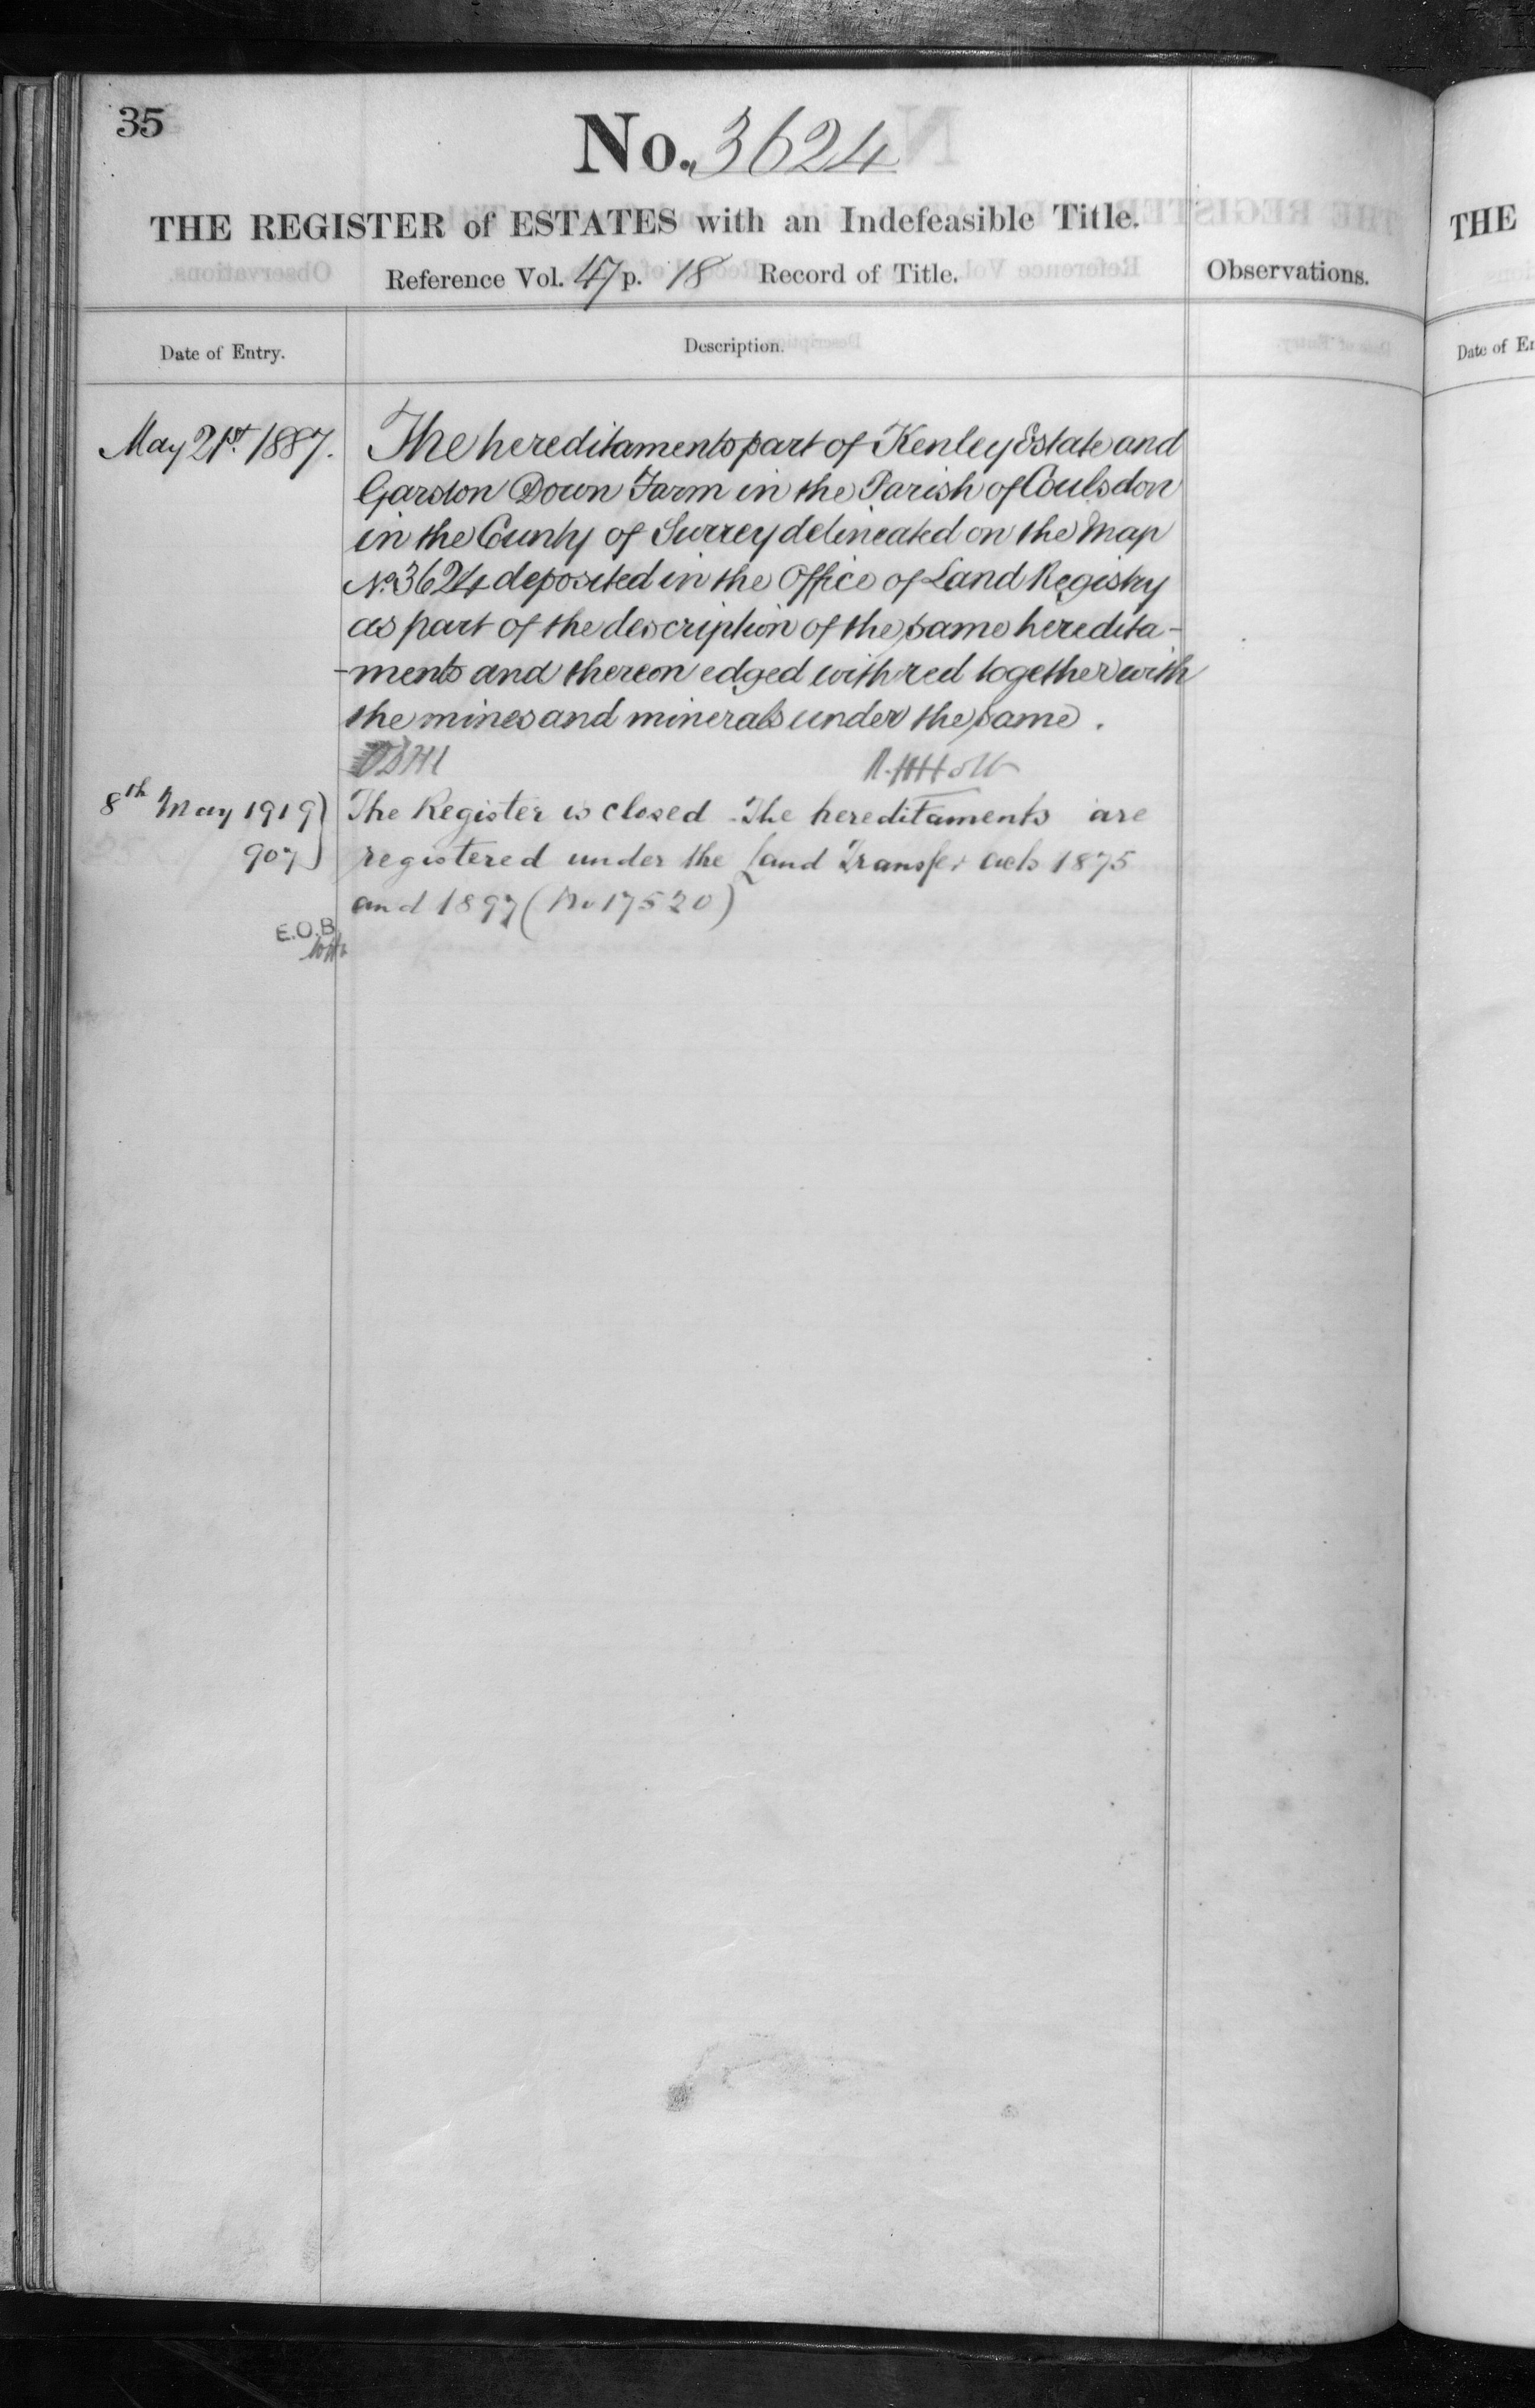 35
No. 3624
THE REGISTER of ESTATES with an Indefeasible Title.
Reference Vol. 47 p. 18 Record of Title.
Observations.
Date of Entry.
Description.
May 21st. 1887.
The hereditaments part of Kenley Estate and
Garston Down Farm in the Parish of Coulsdon
in the County of Surrey delineated on the Map
No. 3624 deposited in the Office of Land Registry
as part of the description of the same heredita-
-ments and thereon edged with red together with
the mines and minerals under the same.
8th May 1919
907
The Register is closed - The hereditaments are
registered under the Land Transfer acts 1875
and 1897 (No 17520)
E.O.B
THE
Date of En